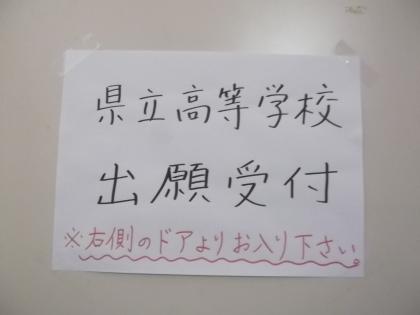 県立高等学校
出願受付
※右側のドアよりお入り下さい。